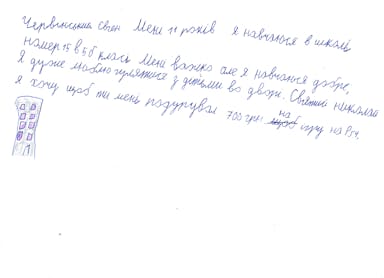 Червінський Євген Мені 11 років я навчаюся в школі
номер 15 в 5б класі Мені важко але я навчаюся добре,
я дуже люблю гулятися з дітьми во дворі. Святий николай
я хочу щоб ти мені подарував 700 грн на игру на PS4.